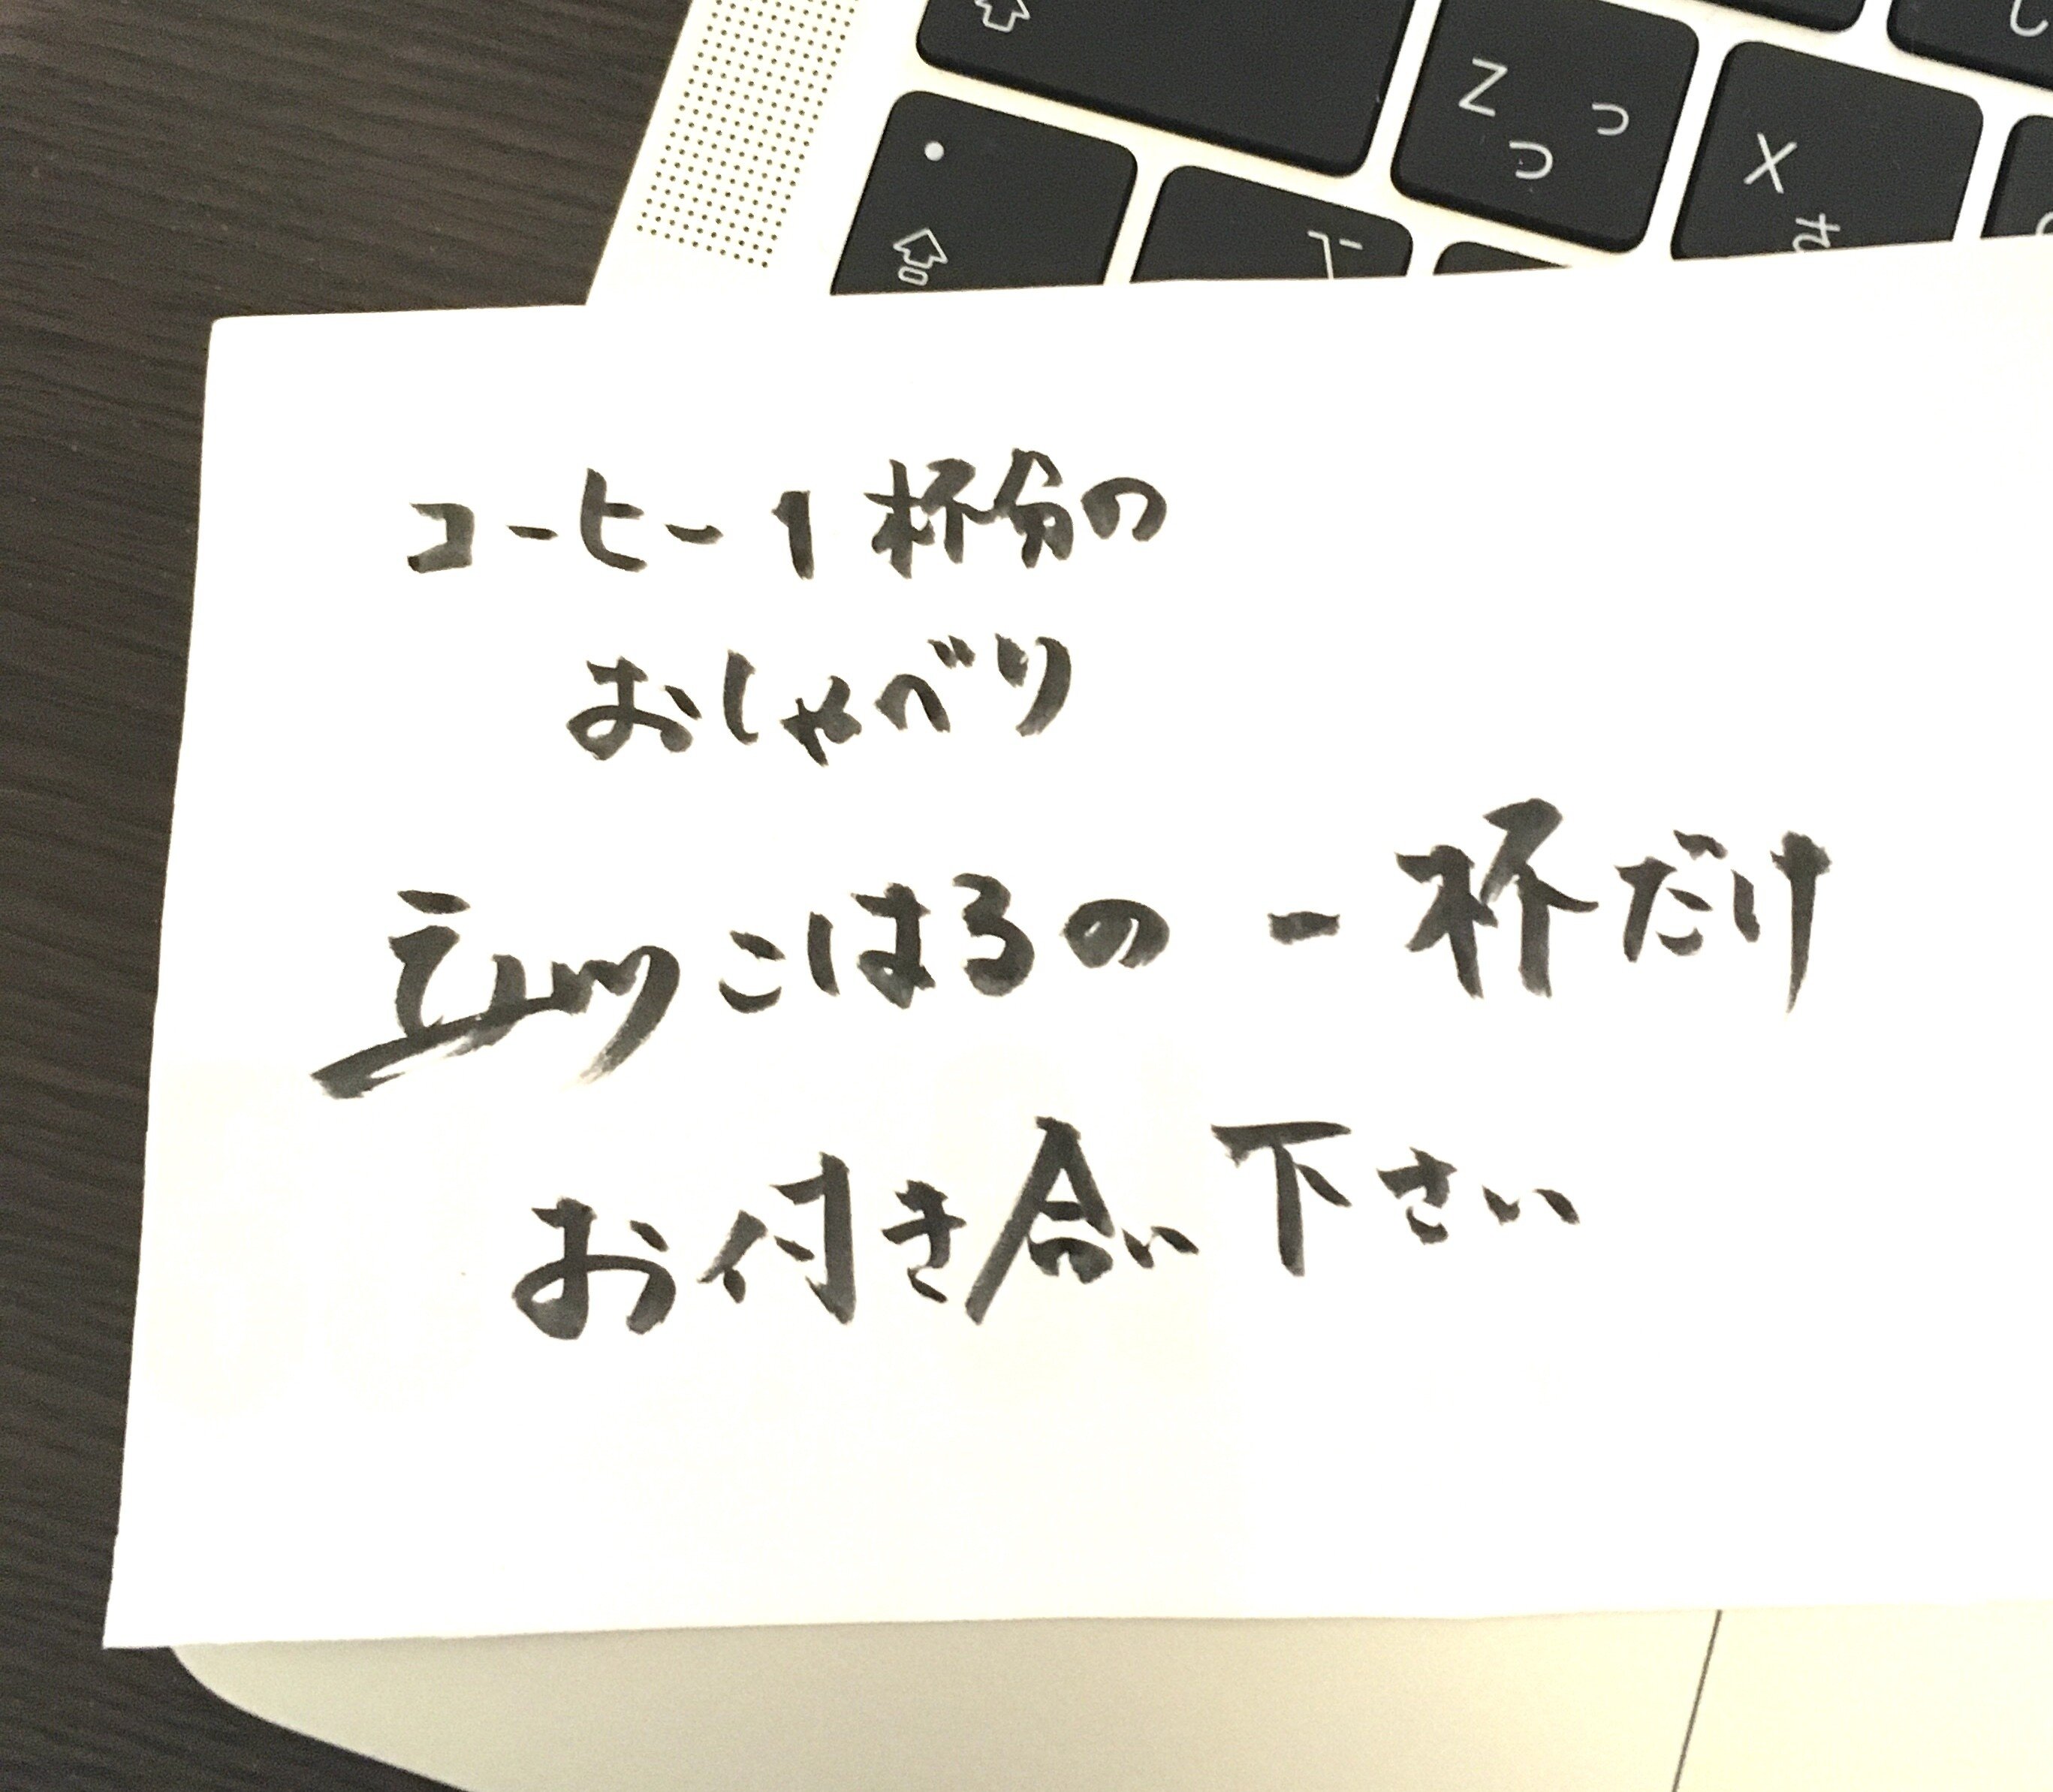 Z
っ
つ
X
さ
コーヒー1杯分の
おしゃべり
立川こはるの 一杯だけ
お付き合い下さい